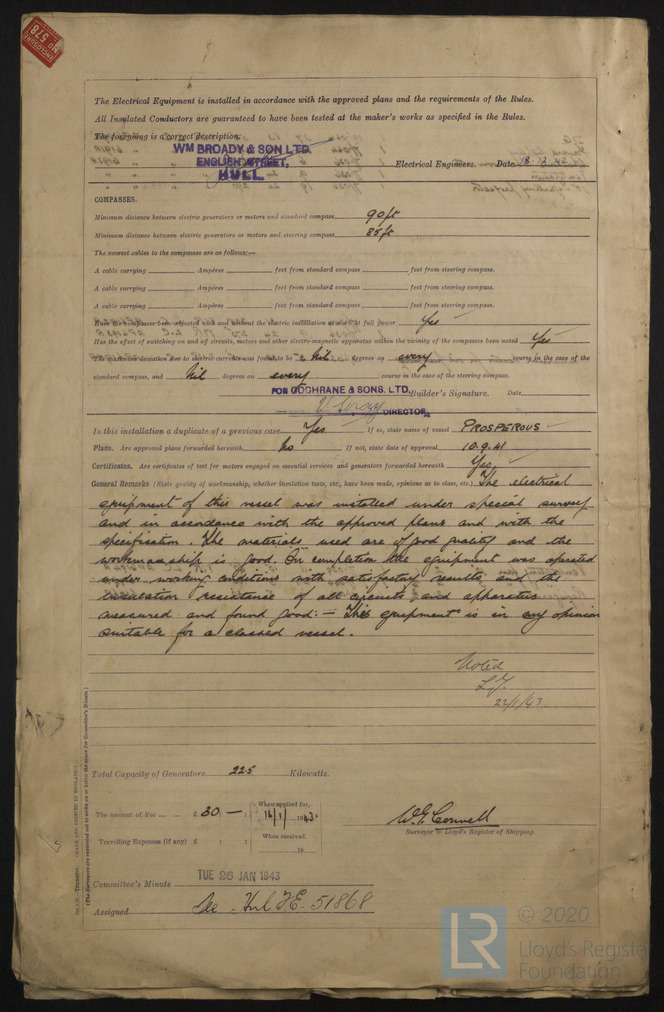 ENCLOSURE
No 578
The Electrical Equipment is installed in accordance with the approved plans and the requirements of the Rules.
All Insulated Conductors are guaranteed to have been tested at the maker's works as specified in the Rules.
The foregoing is a correct description.
WM BROADY & SON LTD.
ENGLISH STREET,
HULL.
Electrical Engineers. Date 18.12.42
COMPASSES.
Minimum distance between electric generators or motors and standard compass 90 ft
Minimum distance between electric generators or motors and steering compass 85 ft
The nearest cables to the compasses are as follows:—
A cable carrying Ampères feet from standard compass feet from steering compass.
A cable carrying Ampères feet from standard compass feet from steering compass.
A cable carrying Ampères feet from standard compass feet from steering compass.
Have the compasses been adjusted with and without the electric installation at work at full power Yes
Has the effect of switching on and off circuits, motors and other electro-magnetic apparatus within the vicinity of the compasses been noted Yes
The maximum deviation due to electric currents was found to be nil degrees on every course in the case of the
standard compass, and nil degrees on every course in the case of the steering compass.
FOR COCHRANE & SONS. LTD. Builder's Signature. Date
DIRECTOR
Is this installation a duplicate of a previous case Yes If so, state name of vessel PROSPEROUS
Plans. Are approved plans forwarded herewith No If not, state date of approval 10.9.41
Certificates. Are certificates of test for motors engaged on essential services and generators forwarded herewith Yes
General Remarks (State quality of workmanship, whether insulation tests, etc., have been made, opinions as to class, etc.) The electrical
equipment of this vessel was installed under special survey
and in accordance with the approved plans and with the
specification. The materials used are of good quality and the
workmanship is good. On completion the equipment was operated
under working conditions with satisfactory results and the
insulation resistance of all circuits and apparatus
measured and found good:— This equipment is in my opinion
suitable for a classed vessel.
Noted
22/1/43
Total Capacity of Generators 225 Kilowatts.
The amount of Fee £ 30 : — : When applied for, 14/1/1943.
W.G. Connell
Surveyor to Lloyd's Register of Shipping.
Travelling Expenses (if any) £ : : When received, 19
Committee's Minute TUE 26 JAN 1943
Assigned See Hul FE. 51868
(The Surveyors are requested not to write on or below the space for Committee's Minute.)
LR
© 2020
Lloyd's Register
Foundation